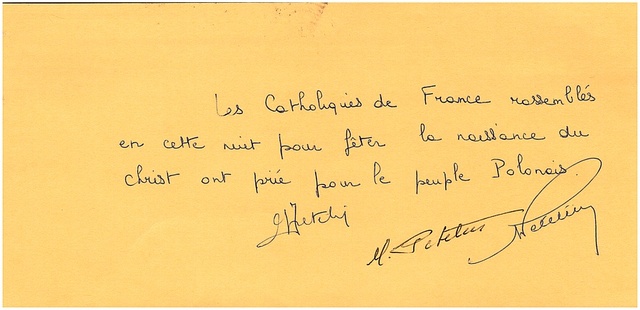 Les Catholiques de France rassemblés
en cette nuit pour fêter la naissance du
christ ont prié pour le peuple Polonais.
M.